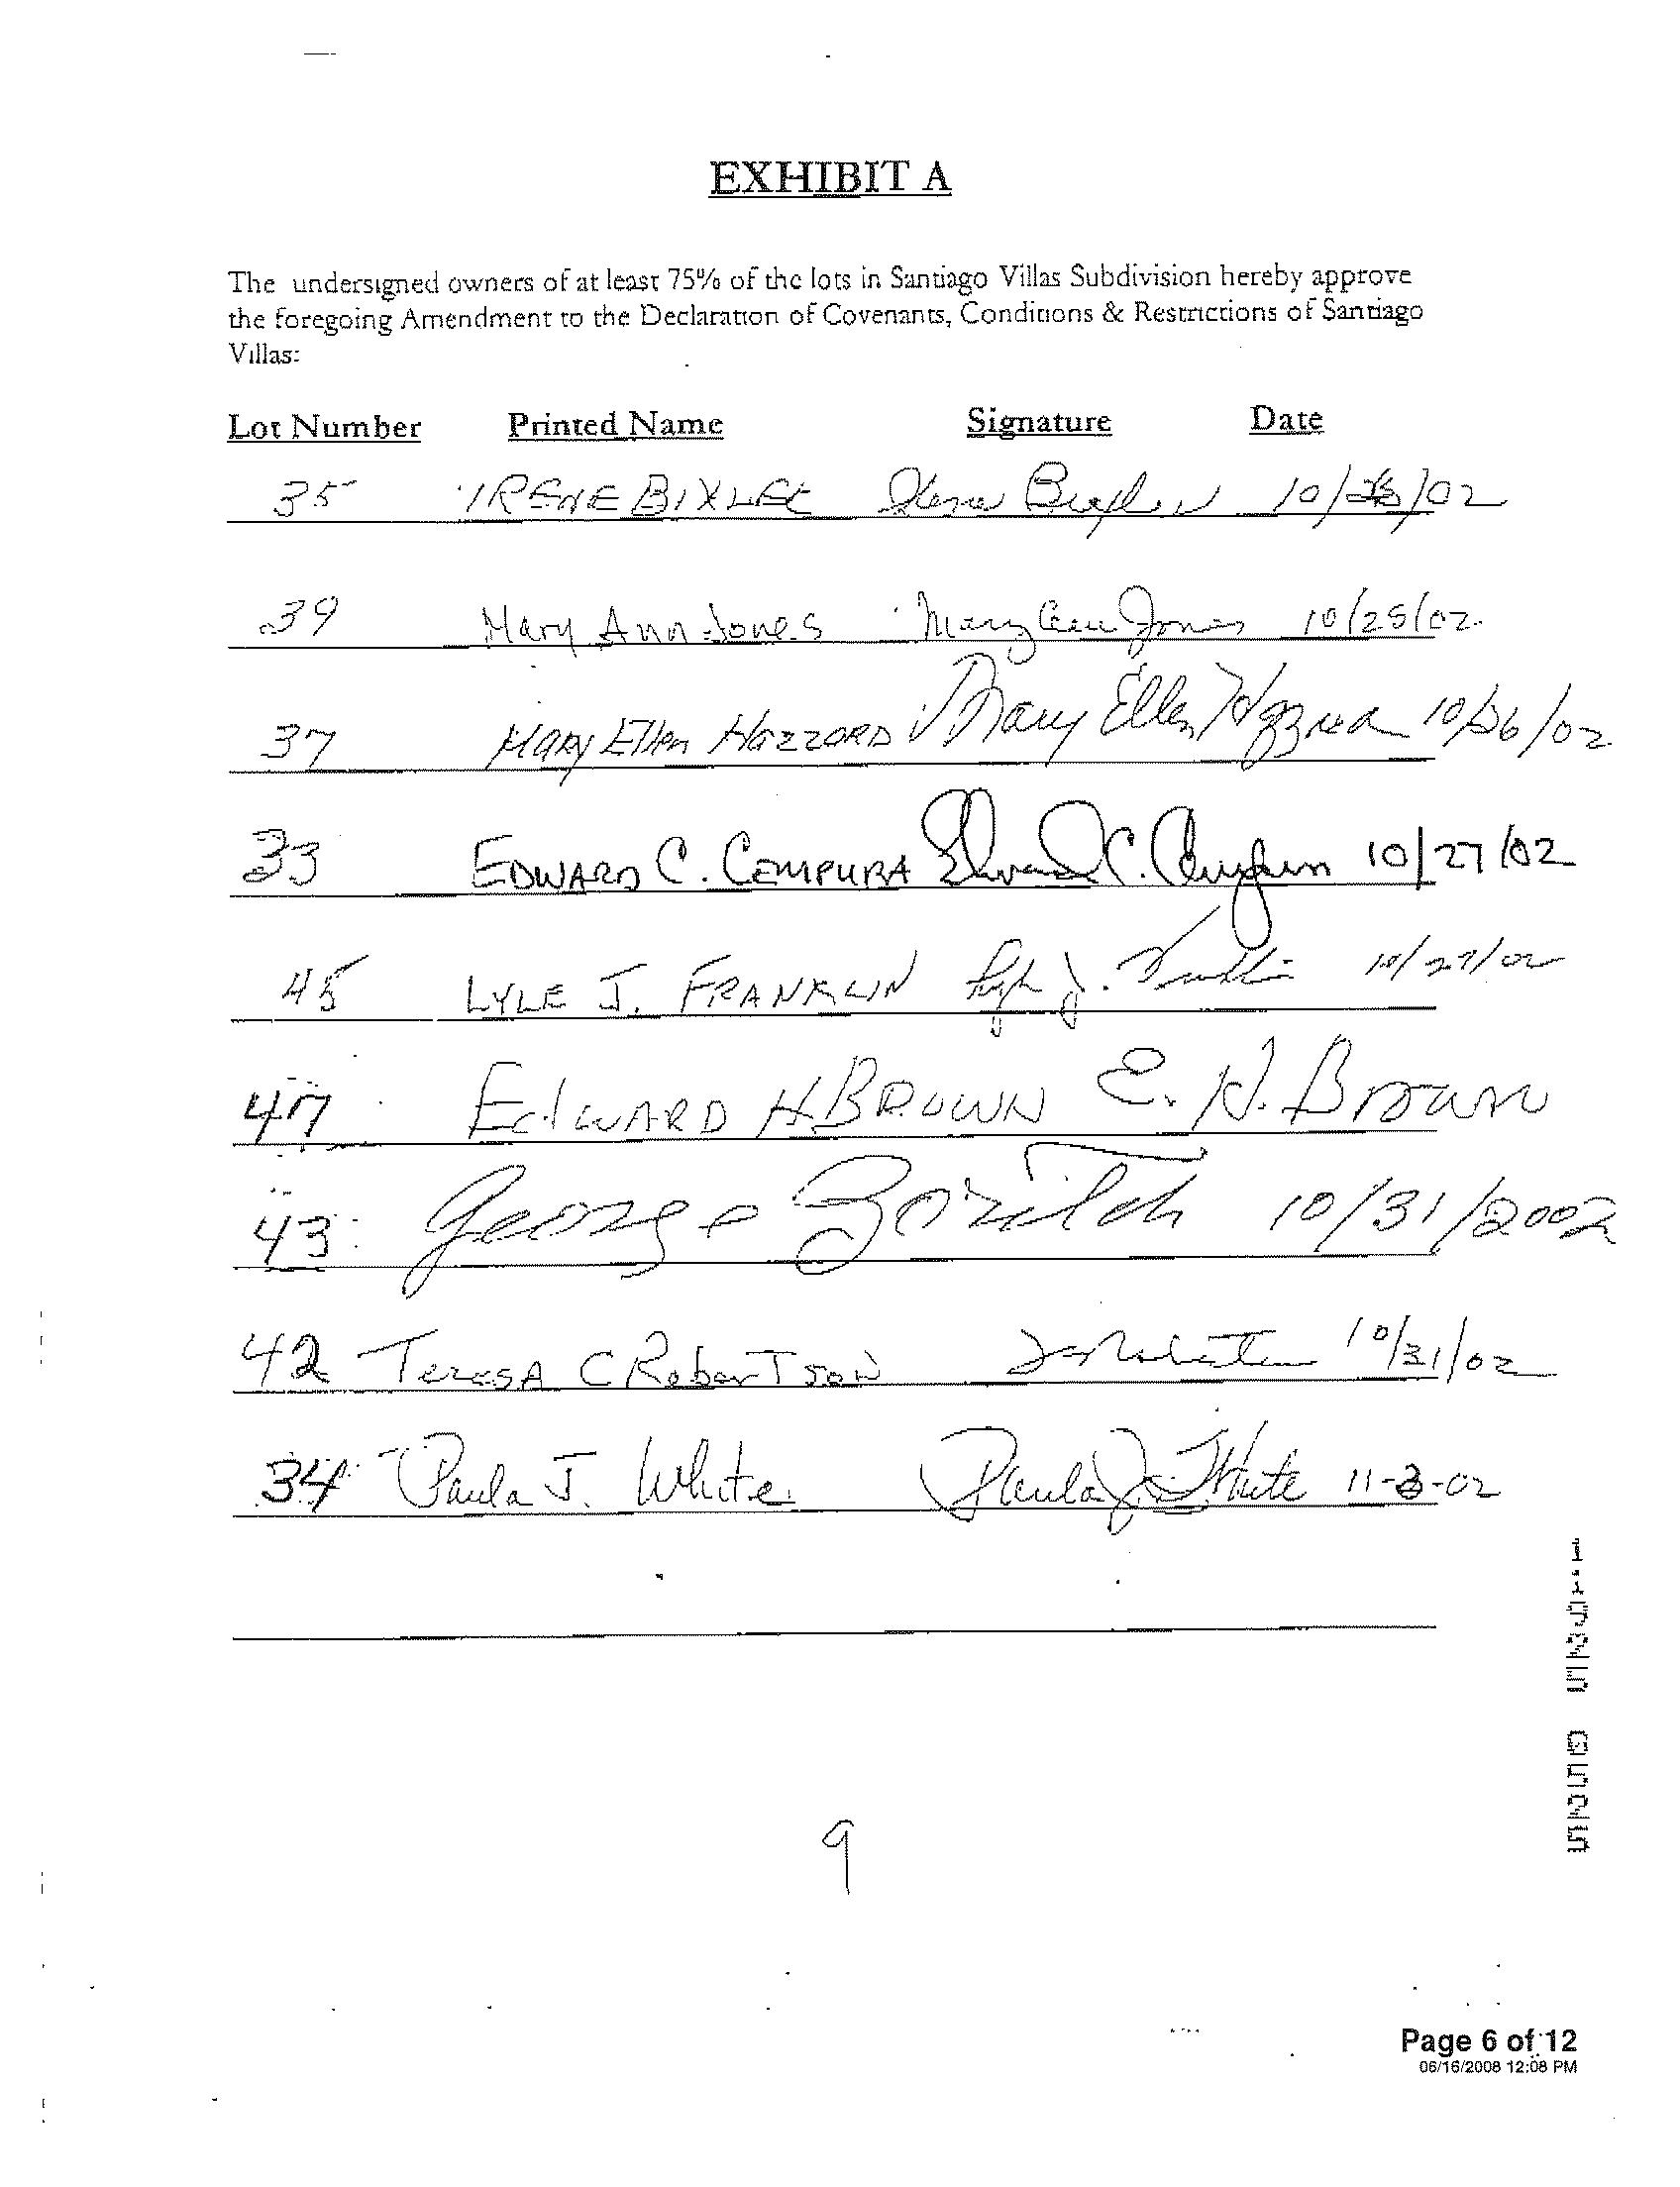 EXHIBIT A
The undersigned owners of at least 75% of the lots in Santiago Villas Subdivision hereby approve
the foregoing Amendment to the Declaration of Covenants, Conditions & Restrictions of Santiago
Villas:
Lot Number Printed Name Signature Date
35 IRENE BIXLER Irene Bixler 10/ /02
39 Mary Ann Jones Mary Ann Jones 10/25/02
37 MARY Ellen HAZZARD Mary Ellen Hazzard 10/26/02
33 EDWARD C. CEMPURA Edward C. Cempura 10/27/02
45 LYLE J. FRANKLIN Lyle J. Franklin 10/27/02
47 EdWARD H BROWN E. H. Brown
43 George 10/31/2002
42 TeresA C RoberTson 10/31/02
34 Paula J. White Paula J. White 11-3-02
9
Page 6 of 12
06/16/2008 12:08 PM